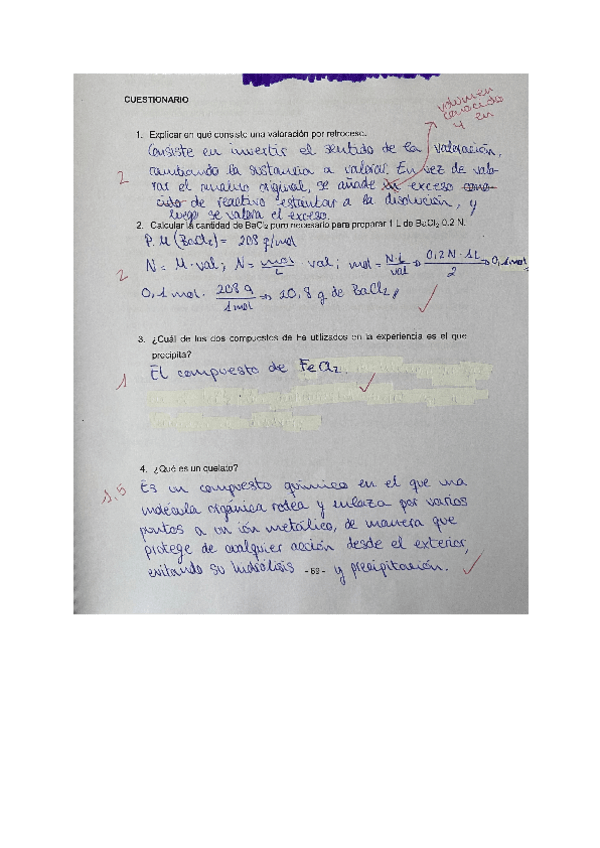 CUESTIONARIO
volumen
conocido
y en
1. Explicar en qué consiste una valoración por retroceso.
Consiste en invertir el sentido de la valoración,
cambiando la sustancia a valorar. En vez de valo-
rar el analito original, se añade exceso cono-
cido de reactivo estantar a la disolución, y
luego se valora el exceso.
2
2. Calcular la cantidad de BaCl₂ puro necesario para preparar 1 L de BaCl₂ 0,2 N.
P.M (BaCl₂) = 208 g/mol
N = M·val; N = mol/L · val; mol = N·L/val → 0,2N · 1L/2 → 0,1mol
2
0,1 mol. 208 g/1mol → 20,8 g de BaCl₂
3. ¿Cuál de los dos compuestos de Fe utilizados en la experiencia es el que
precipita?
El compuesto de FeCl₂.
1
4. ¿Qué es un quelato?
1,5
Es un compuesto químico en el que una
molécula orgánica rodea y enlaza por varios
puntos a un ión metálico, de manera que
protege de cualquier acción desde el exterior,
evitando su hidrólisis y precipitación.
- 69 -